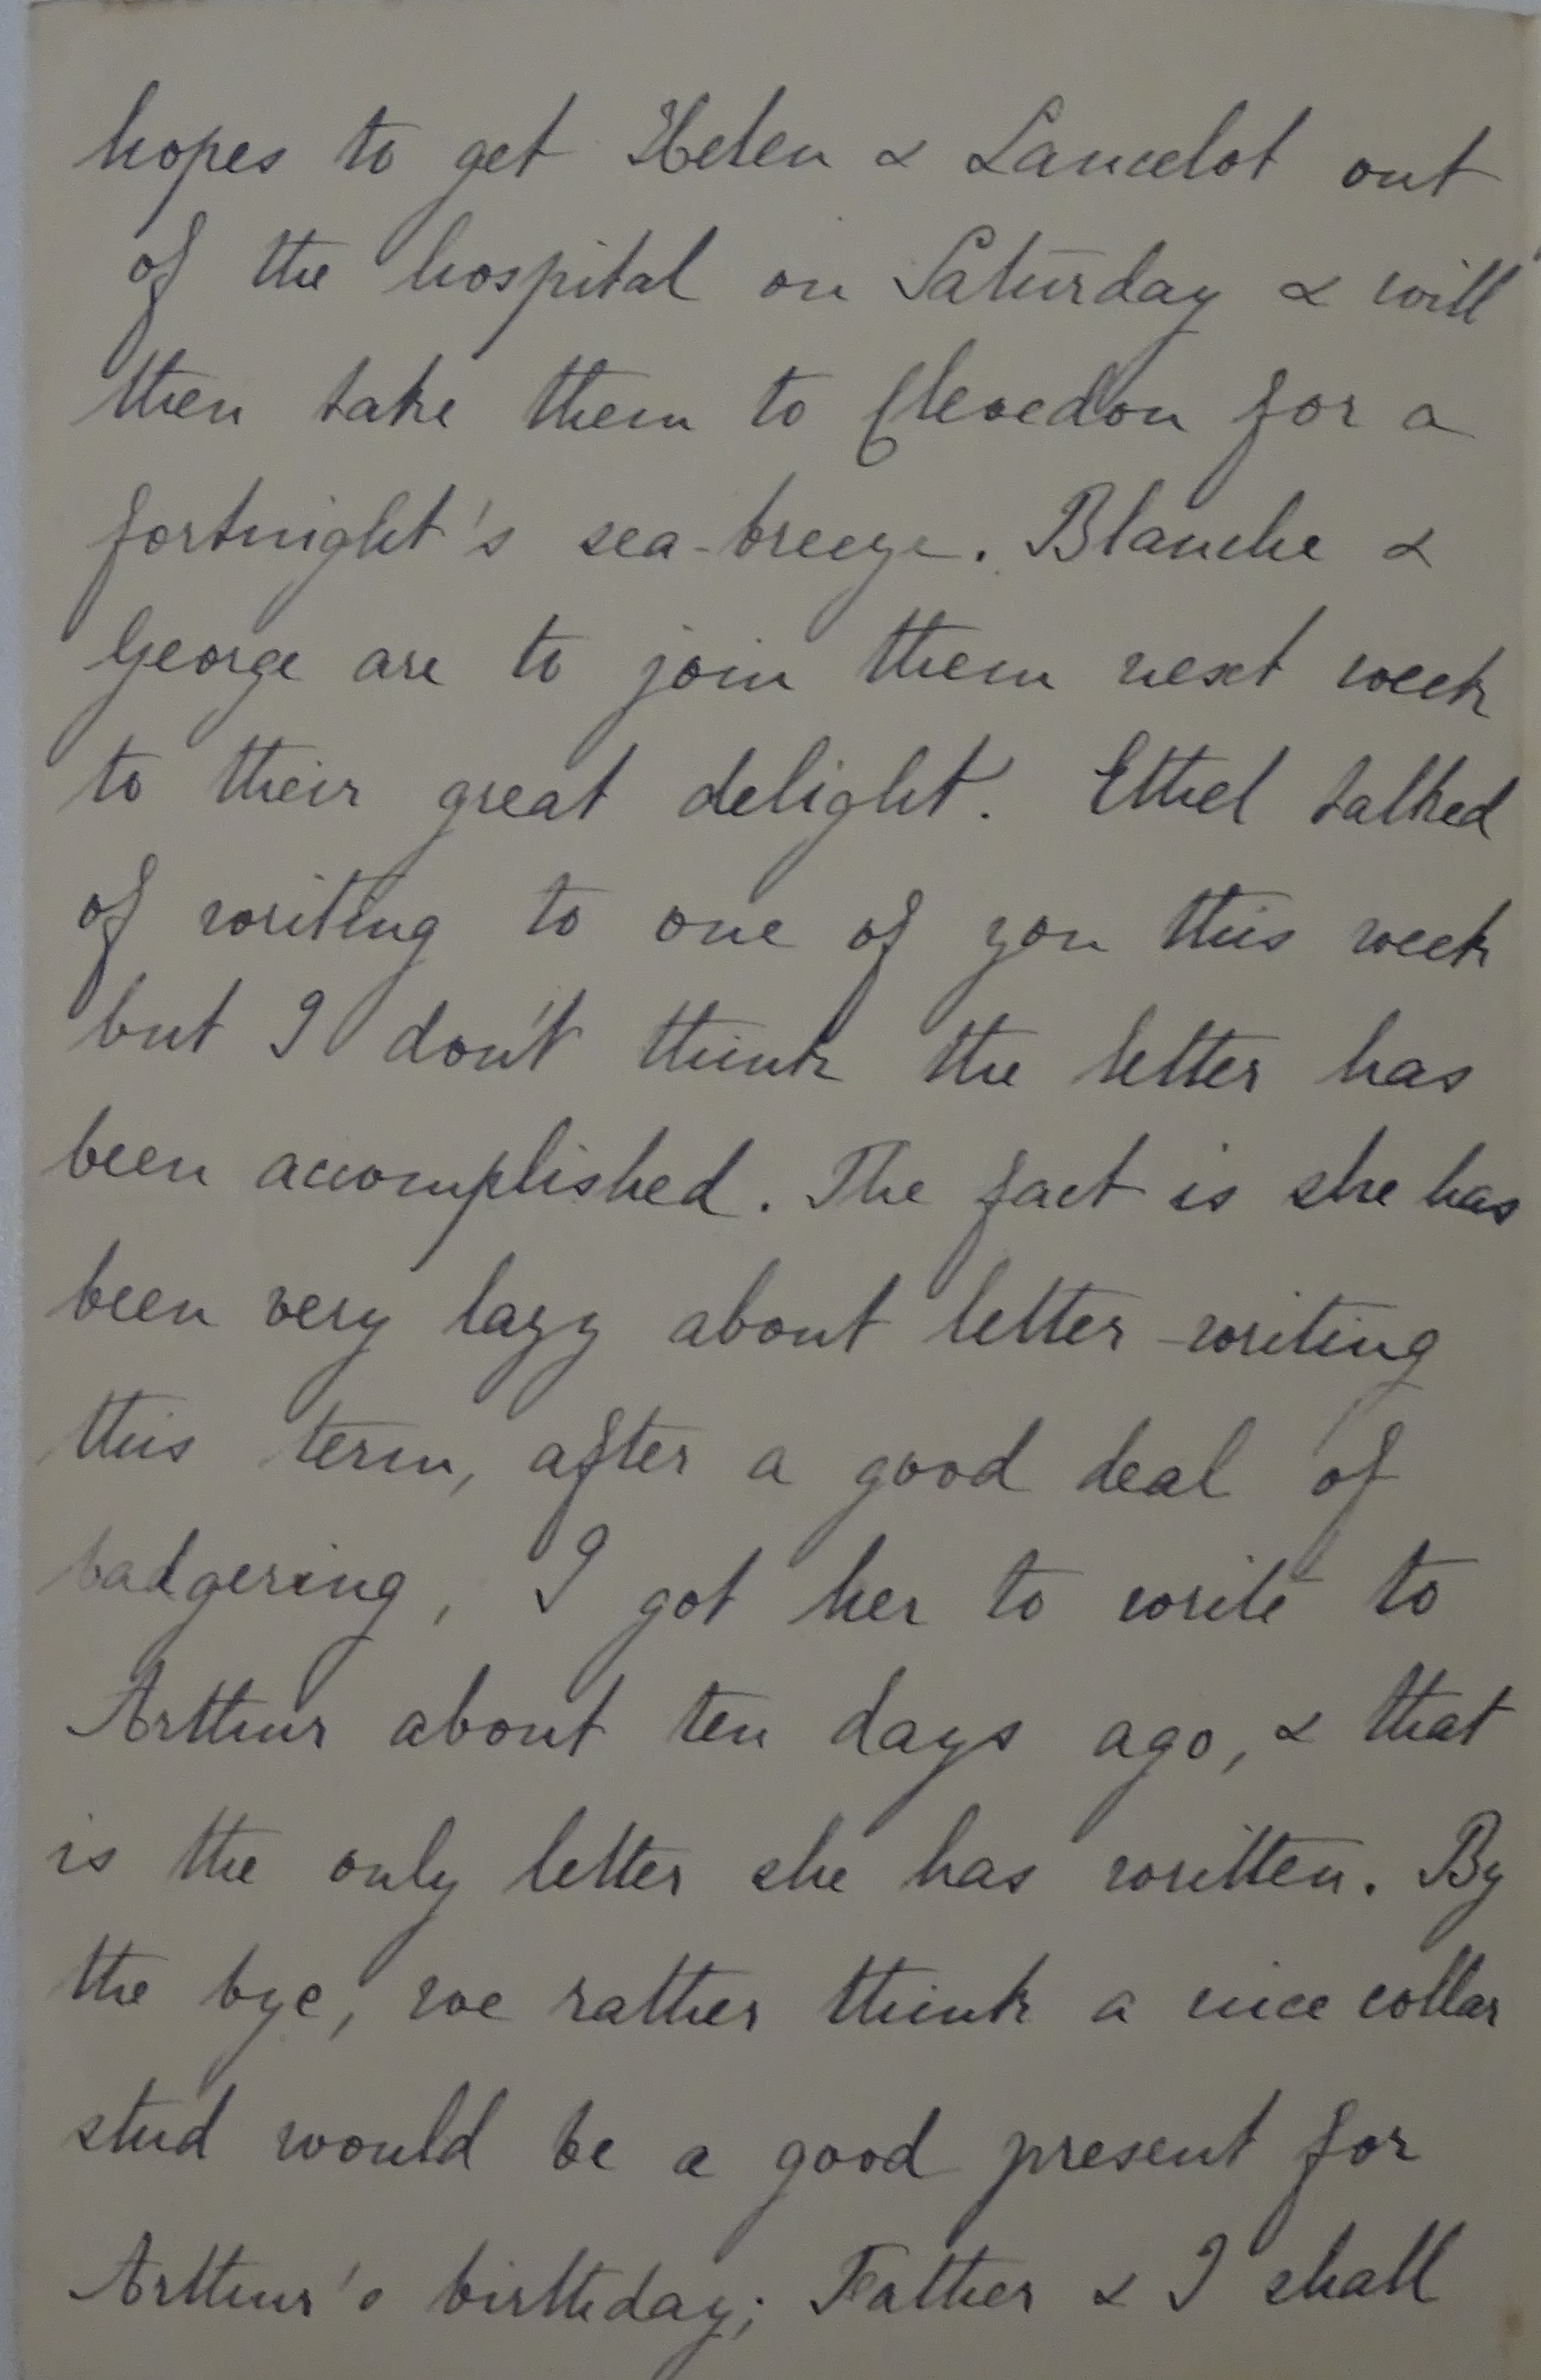 hopes to get Helen & Lancelot out
of the hospital on Saturday & will
then take them to Clevedon for a
fortnight's sea-breeze. Blanche &
George are to join them next week
to their great delight. Ethel talked
of writing to one of you this week
but I don't think the letter has
been accomplished. The fact is she has
been very lazy about letter-writing
this term, after a good deal of
badgering, I got her to write to
Arthur about ten days ago, & that
is the only letter she has written. By
the bye, we rather think a nice collar
stud would be a good present for
Arthur's birthday; Father & I shall